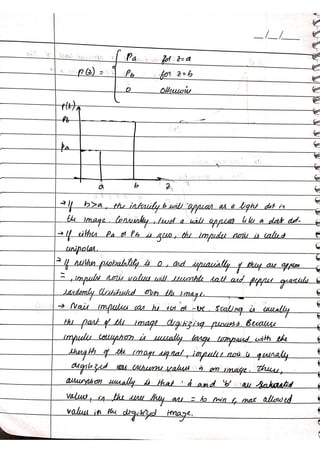 __/__/__
Pa for z=a
P(z) = Pb for z=b
0 otherwise
P(z)
Pb
Pa
a b z
→ If b>a, the intensity b will appear as a light dot in
the image. Conversely, level a will appear like a dark dot.
→ If either Pa or Pb is zero, the impulse noise is called
unipolar.
→ If neither probability is 0, and especially if they are approx
=, impulse noise values will resemble salt and pepper granules
randomly distributed over the image.
→ Noise impulses can be +ve or -ve. Scaling is usually
the part of the image digitizing process. Because
impulse corruption is usually large compared with the
strength of the image signal, impulse noise is generally
digitized as extreme values in an image. Thus,
assumption usually is that 'a' and 'b' are saturated
values, in the sense they are = to min & max allowed
values in the digitized image.